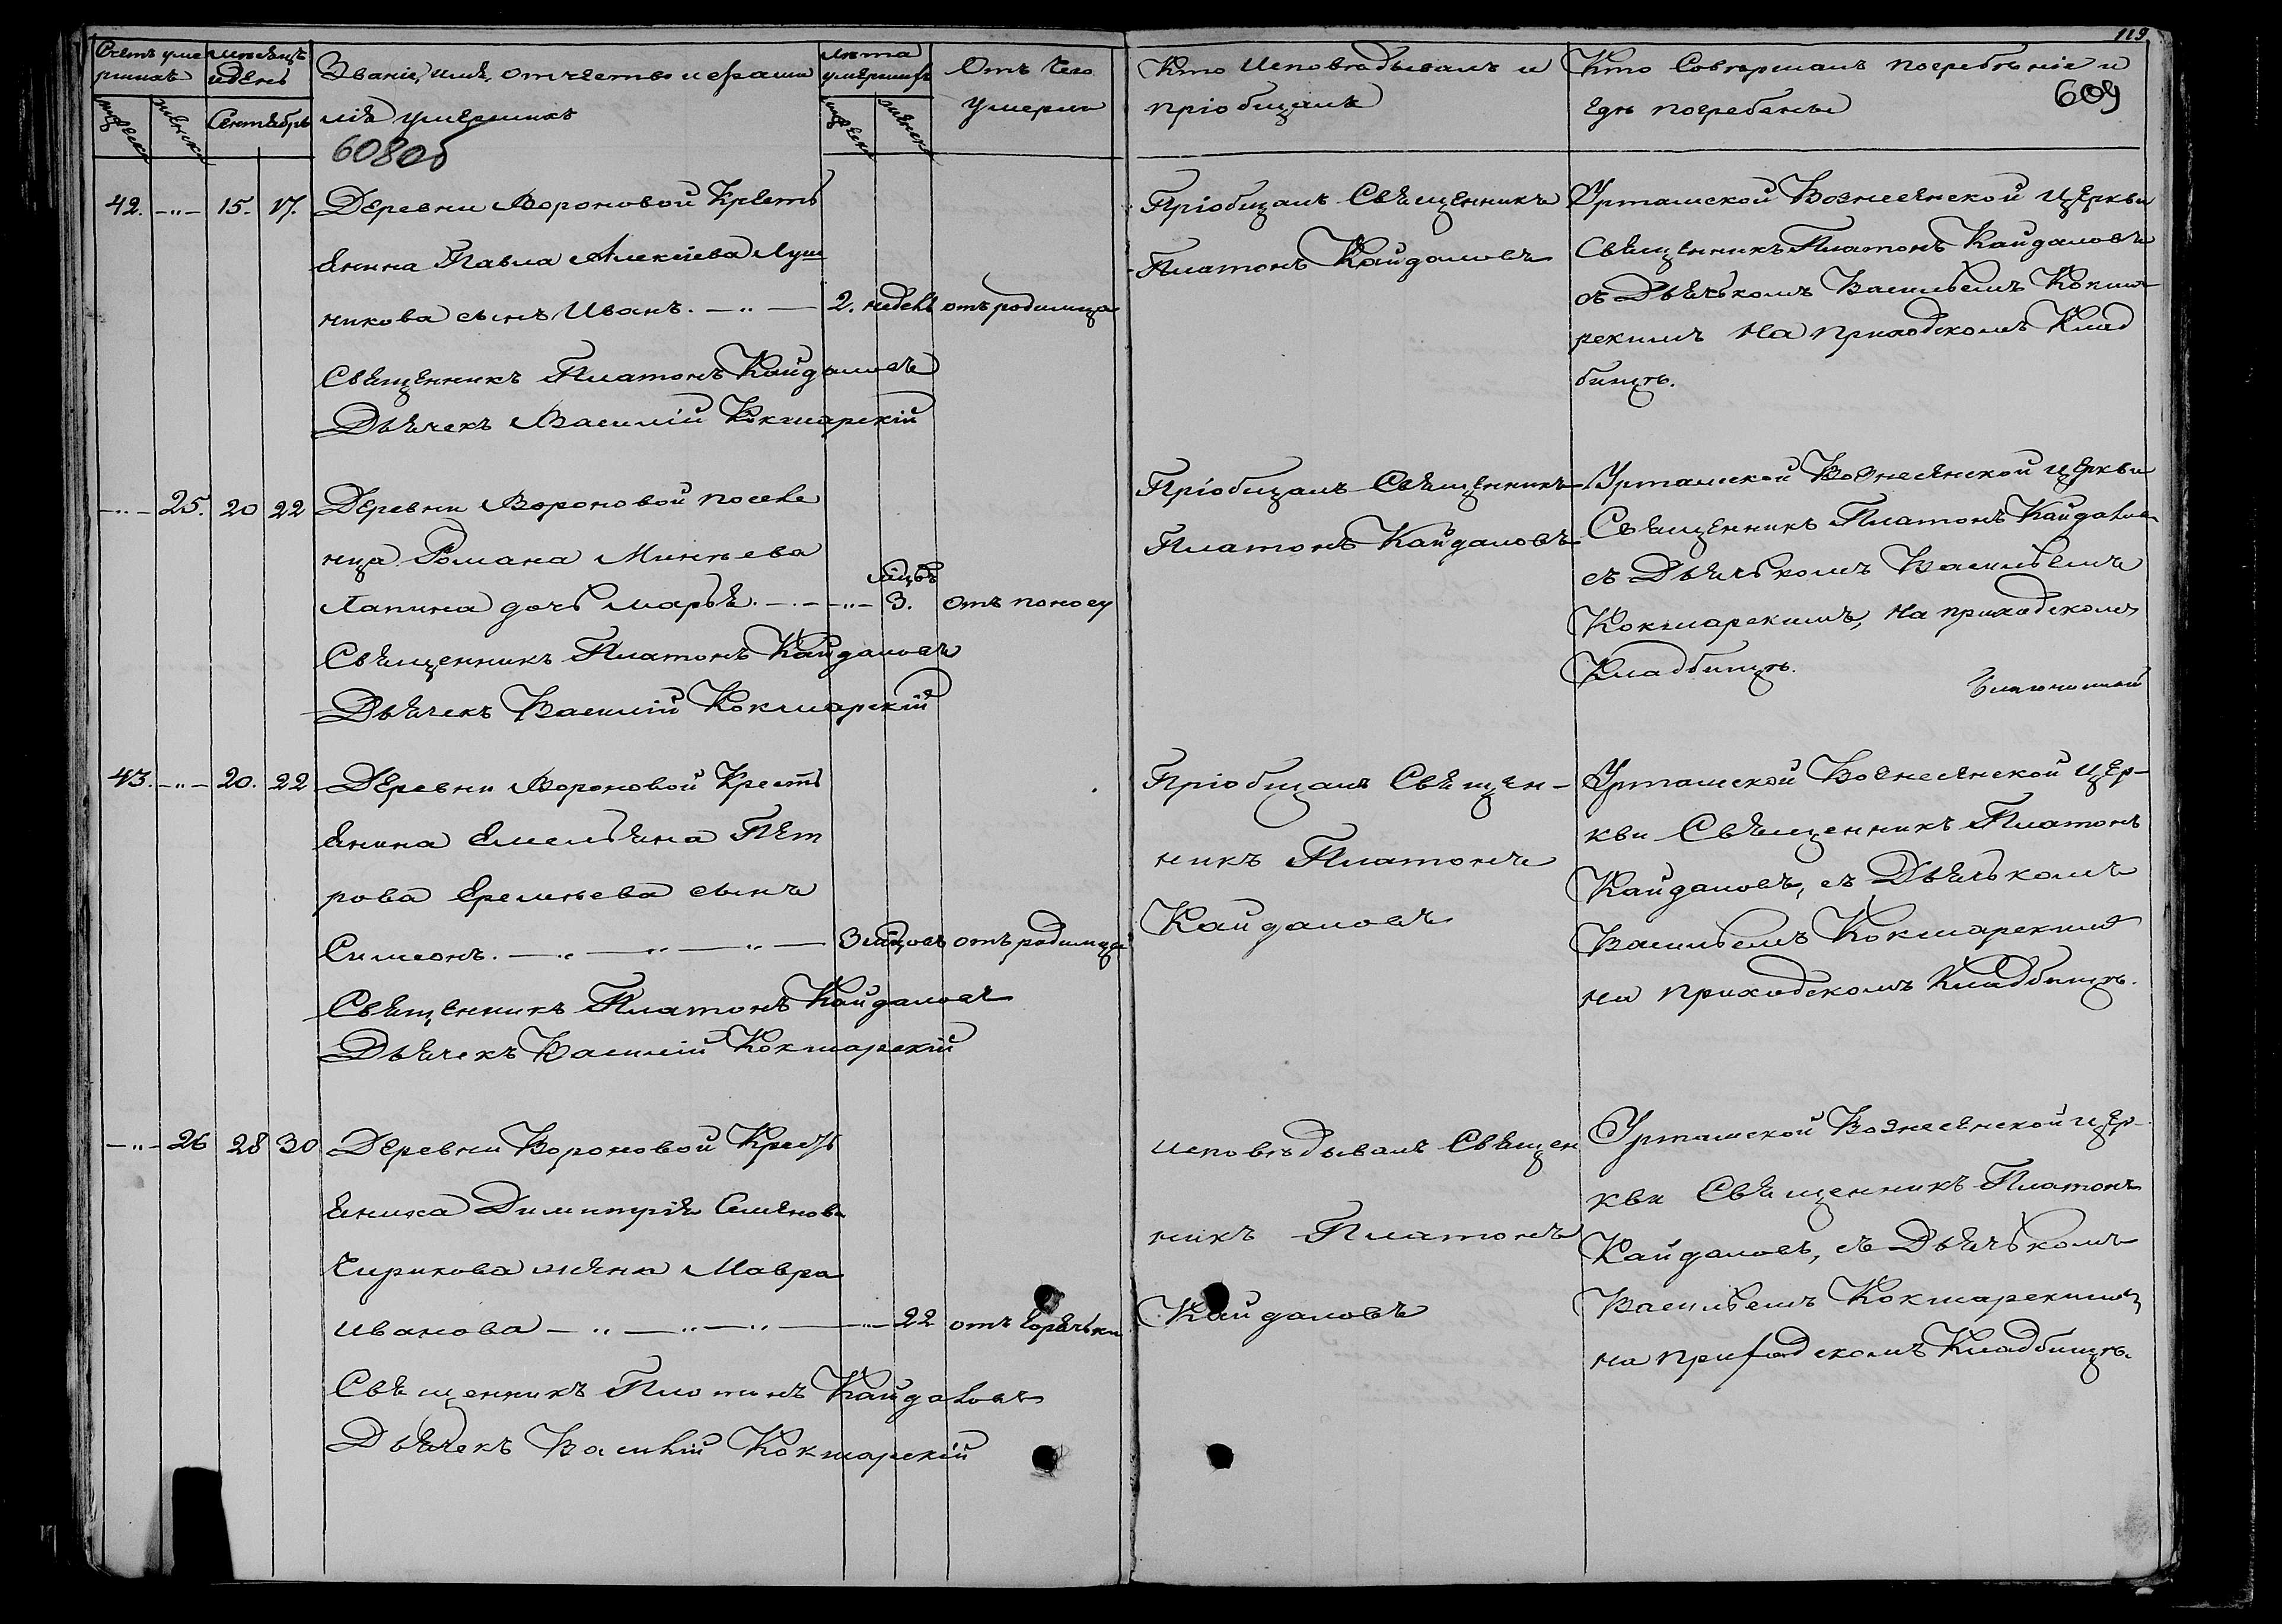 119.
609
Счетъ уме
ршихъ
Мѣсяцъ
и день
Званіе, имя, отчество и фами
лія умершихъ
Лѣта
умершихъ
Отъ чего
умерли
Кто исповѣдывалъ и
пріобщалъ
Кто совершалъ погребѣніе и
гдѣ погребены
мужеска
женска
Сентябрь
мужеска
женска
608об
42. -„- 15. 17. Деревни Вороновой Кресть
янина Павла Алексіева Луш
никова сынъ Иванъ. 2. недель отъ родимца
Священникъ Платонъ Кайдаловъ
Дьячекъ Василій Кокшарскій
Пріобщалъ Священникъ
Платонъ Кайдаловъ
Урташской Вознесенской церкви
Священникъ Платонъ Кайдаловъ
съ Дьячькомъ Васильемъ Кокша
рскимъ на приходскомъ Клад
бищѣ.
-„- 25. 20 22 Деревни Вороновой посele
нца Романа Минѣева
мцовъ
Лапина дочь Марья. -„- 3. отъ поносу
Священникъ Платонъ Кайдаловъ
Дьячекъ Василій Кокшарскій
Пріобщалъ Священникъ
Платонъ Кайдаловъ
Урташской Вознесенской церкви
Священникъ Платонъ Кайдаловъ
съ Дьячькомъ Васильемъ
Кокшарскимъ, на приходскомъ
Кладбищѣ.
43. -„- 20. 22 Деревни Вороновой Кресть
янина Емельяна Пет
рова Еремѣева сынъ
Симеонъ. 3 мѣсцовъ отъ родимца
Священникъ Платонъ Кайдаловъ
Дьячекъ Василій Кокшарскій
Пріобщалъ Священ-
никъ Платонъ
Кайдаловъ
Урташской Вознесенской цер-
кви Священникъ Платонъ
Кайдаловъ, съ Дьячькомъ
Васильемъ Кокшарскимъ
на приходскомъ Кладбищѣ.
-„- 26 28 30 Деревни Вороновой Кресть
янина Димитрія Семенова
Чирикова жена Мавра
Иванова -„- 22 отъ горячьки
Священникъ Платонъ Кайдаловъ
Дьячекъ Василій Кокшарскій
исповѣдывалъ Священ
никъ Платонъ
Кайдаловъ
Урташской Вознесенской цер-
кви Священникъ Платонъ
Кайдаловъ, съ Дьячькомъ
Васильемъ Кокшарскимъ
на приходскомъ Кладбищѣ.